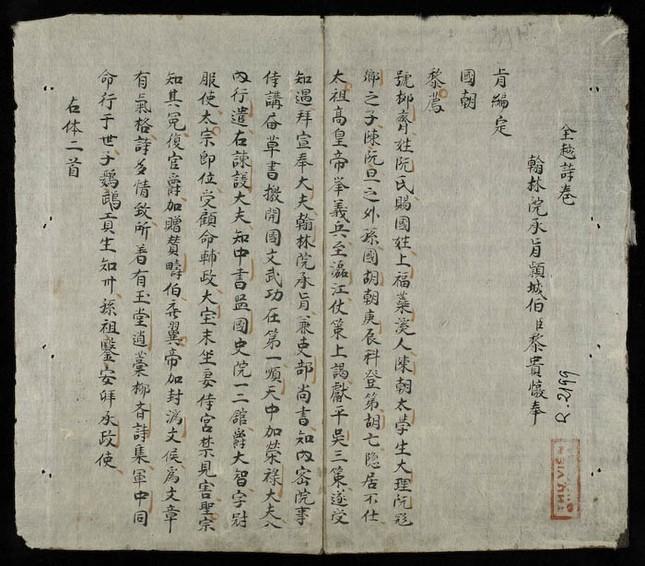 全越詩卷
翰林院承旨穎城伯臣黎貴惇奉
旨編定
國朝
黎廌
號抑齋姓阮氏賜國姓上福蕊溪人陳朝太學生大理阮飛
卿之子陳阮旦之外孫國胡朝庚辰科登第胡亡隐居不仕
太祖高皇帝举義兵至瀘江仗策上謁獻平吳三策遂受
知遇拜宣奉大夫翰林院承旨兼吏部尚書知內密院事
侍講草書檄開國文武功在第一順天中加榮禄大夫入
內行遣右諫議大夫知中書監國史院一二舘爵大智字尉
服使太宗即位受顧命輔政大宝末坐妻侍宮禁見害聖宗
知其冤復官爵加贈賛疇伯襄翼帝加封濟文侯爲文章
有氣格詩多情致所著有玉堂遺藁抑斎詩集軍中同
命行于世子鸚鵡貢生知州孫祖鑒安拜承政使
右体二首
2199